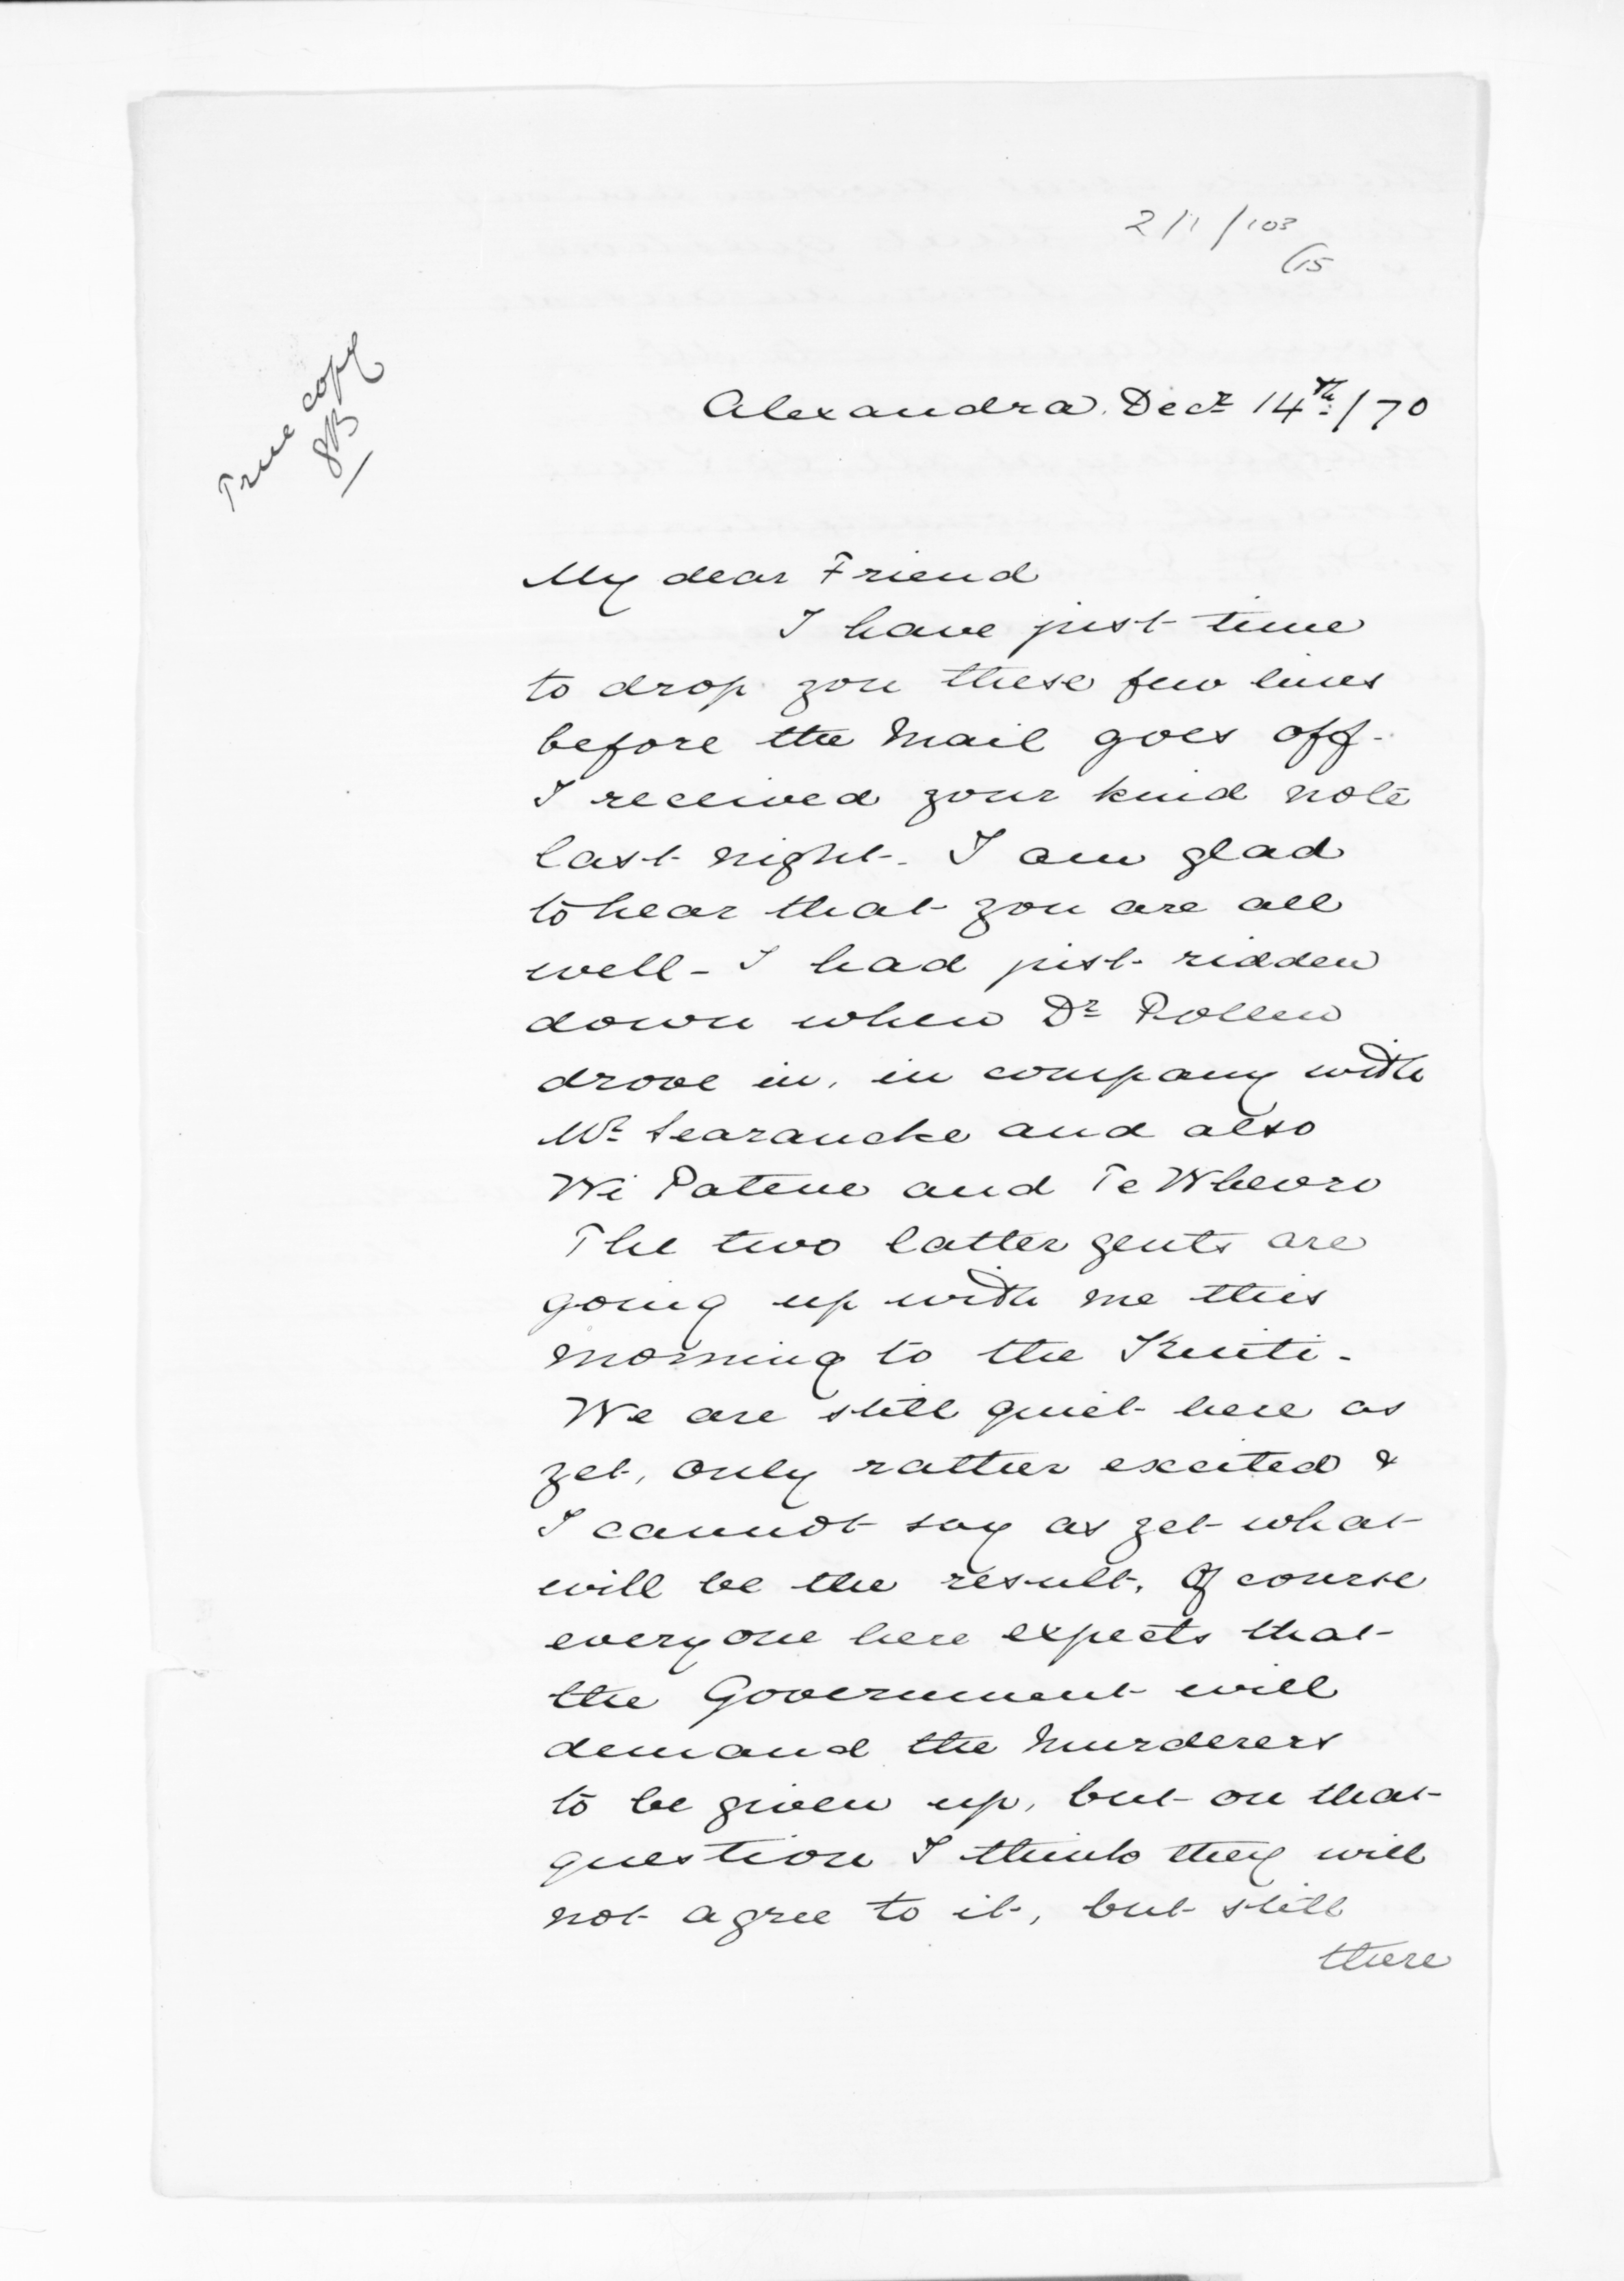 2/1/103
/15
True copy
Alexandra. Decr 14th/70
My dear Friend
I have just time
to drop you these few lines
before the Mail goes off-
I received your kind note
last night. I am glad
to hear that you are all
well - I had just ridden
down when Dr Pollen
drove in, in company with
Mr Searancke and also
Wi Patene and Te Wheoro
The two latter gents are
going up with me this
morning to the Kuiti -
We are still quiet here as
yet, only rather excited &
I cannot say as yet what
will be the result. Of course
everyone here expects that
the Government will
demand the Murderers
to be given up, but on that
question I think they will
not agree to it, but still
there